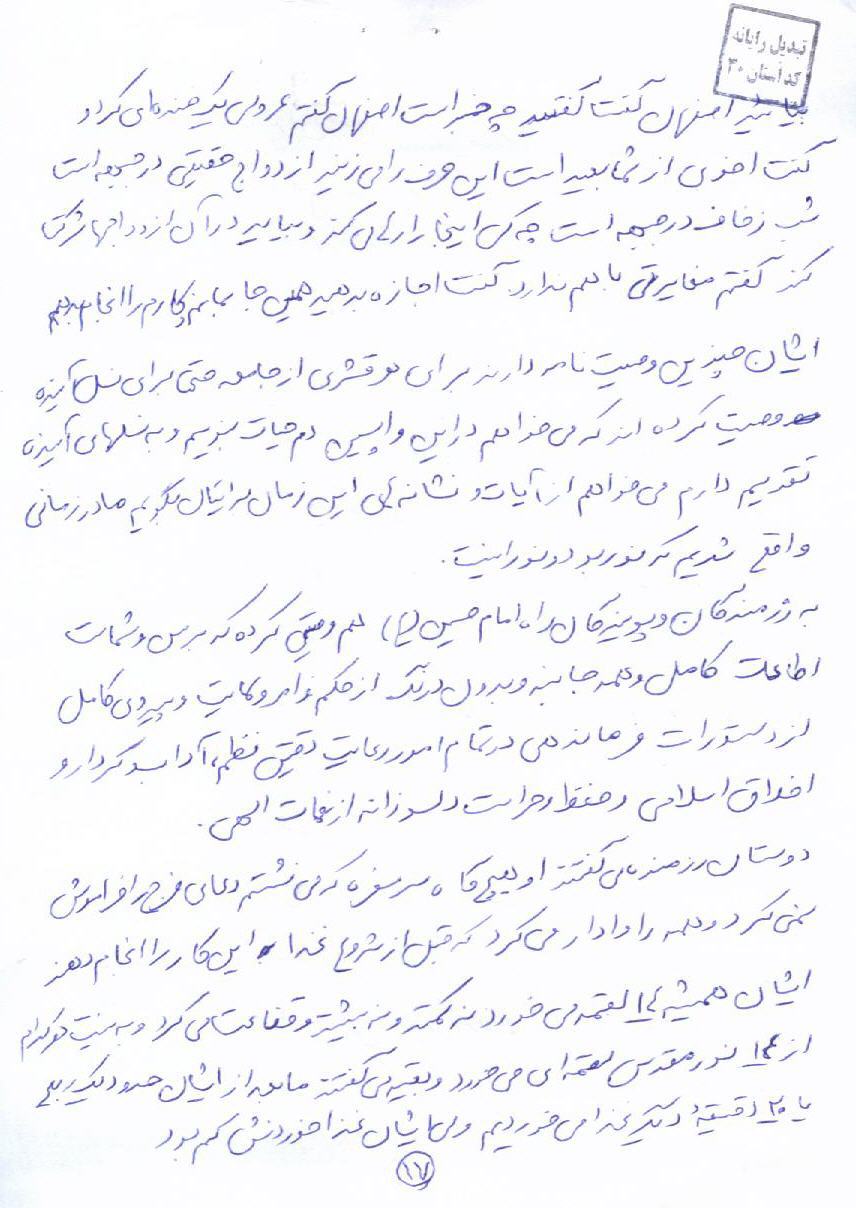 تبدیل رایانه
کد استان ۳۰
بیایید اصفهان گفت گفتید چه خبر است اصفهان گفتم عروسی یک بنده‌ای کرد و
گفت اخوی از شما بعید است این حرف را می زنید ازدواج حقیقی در جبهه است
شب زفاف در جبهه است چه کسی اینجا را رها می کند و بیاید در آن ازدواجها شرکت
کند گفتم مغایرتی با هم ندارد. گفت اجازه بدهید همین جا بمانم و کارم را انجام بدهم
ایشان چندین وصیت نامه دارند برای هر قشری از جامعه حتی برای نسل آینده
وصیت کرده اند که می خواهم در این واپسین دم حیات بنویسم و به نسلهای آینده
تقدیم دارم می خواهم از آیات و نشانه های این زمان برایتان بگویم ما در زمانی
واقع شدیم که نور بود و نورانیت.
به رزمندگان و پویندگان راه امام حسین (ع) هم وصیتی کرده که بر من و شماست
اطاعت کامل و همه جانبه و بدون درنگ از حکم و امر ولایت و پیروی کامل
از دستورات فرماندهی در تمام امور رعایت دقیق نظم، آداب و کردار و
اخلاق اسلامی و حفظ و حراست دلسوزانه از نعمات الهی.
دوستان رزمنده می گفتند او هیچ گاه سر سفره که می نشستم دعای فرج را فراموش
نمی کرد و همه را وادار می کرد که قبل از شروع غذا این کار را انجام دهند
ایشان همیشه ۱۴ لقمه می خورد نه کمتر و نه بیشتر و قناعت می کرد و به نیت هر کدام
از ۱۴ نور مقدس لقمه ای می خورد و بقیه می گفتند ما بعد از ایشان حدود یک ربع
یا ۲۰ دقیقه دیگر غذا می خوردیم ولی ایشان غذا خوردنش کم بود
۱۷